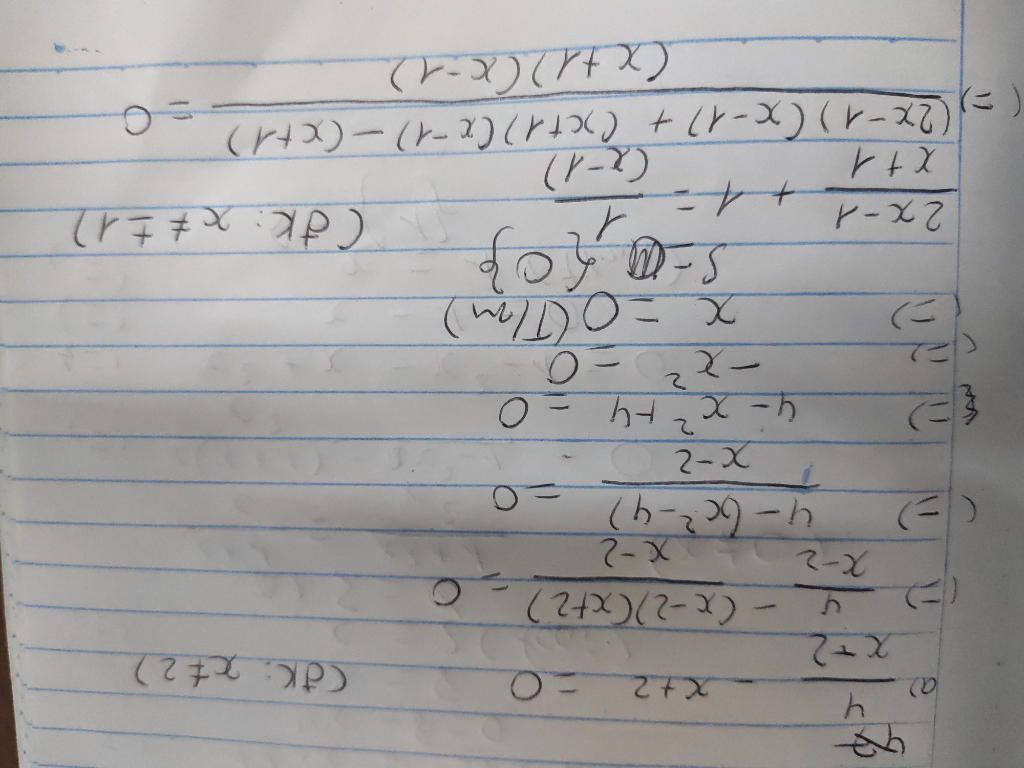 a) 4/(x-2) - x+2 = 0 (đk: x≠2)
(=) 4/(x-2) - (x-2)(x+2)/(x-2) = 0
(=) (4-(x²-4))/(x-2) = 0
(=) 4-x²+4 = 0
(=) -x² = 0
(=) x = 0 (T/m)
S= {0}
(2x-1)/(x+1) + 1 = 1/(x-1) (đk: x≠±1)
(=) ((2x-1)(x-1) + (x+1)(x-1) - (x+1))/((x+1)(x-1)) = 0